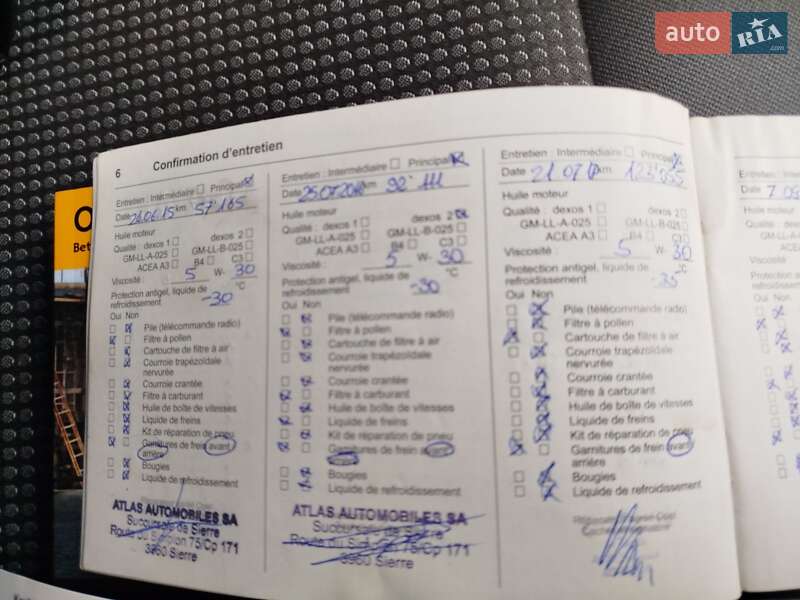 auto RIA.com
6 Confirmation d'entretien
Entretien : Intermédiaire Principal
Date 57'165 km
Huile moteur
Qualité : dexos 1 dexos 2
GM-LL-A-025 GM-LL-B-025
ACEA A3 B4 C3
Viscosité : 5 W- 30
Protection antigel, liquide de
refroidissement -30 °C
Oui Non
Pile (télécommande radio)
Filtre à pollen
Cartouche de filtre à air
Courroie trapézoïdale
nervurée
Courroie crantée
Filtre à carburant
Huile de boîte de vitesses
Liquide de freins
Kit de réparation de pneu
Garnitures de frein avant
arrière
Bougies
Liquide de refroidissement
ATLAS AUTOMOBILES SA
Succursale de Sierre
Route du Simplon 75/Cp 171
3960 Sierre
Entretien : Intermédiaire Principal
Date km 92'111
Huile moteur
Qualité : dexos 1 dexos 2
GM-LL-A-025 GM-LL-B-025
ACEA A3 B4 C3
Viscosité : 5 W- 30
Protection antigel, liquide de
refroidissement -30 °C
Oui Non
Pile (télécommande radio)
Filtre à pollen
Cartouche de filtre à air
Courroie trapézoïdale
nervurée
Courroie crantée
Filtre à carburant
Huile de boîte de vitesses
Liquide de freins
Kit de réparation de pneu
Garnitures de frein avant
Bougies
Liquide de refroidissement
ATLAS AUTOMOBILES SA
Succursale de Sierre
Route du Simplon 75/Cp 171
3960 Sierre
Entretien : Intermédiaire Principal
Date 21 07 km
Huile moteur
Qualité : dexos 1 dexos 2
GM-LL-A-025 GM-LL-B-025
ACEA A3 B4 C3
Viscosité : 5 W- 30
Protection antigel, liquide de
refroidissement -35 °C
Oui Non
Pile (télécommande radio)
Filtre à pollen
Cartouche de filtre à air
Courroie trapézoïdale
nervurée
Courroie crantée
Filtre à carburant
Huile de boîte de vitesses
Liquide de freins
Kit de réparation de pneu
Garnitures de frein avant
arrière
Bougies
Liquide de refroidissement
Entretien : Inter
Date 7 09
Huile moteur
Qualité : dexos
GM-LL-A-02
ACEA A
Viscosité :
Protection antig
refroidissement
Oui Non